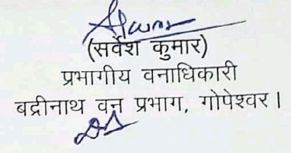 (सर्वेश कुमार)
प्रभागीय वनाधिकारी
बद्रीनाथ वन प्रभाग, गोपेश्वर।